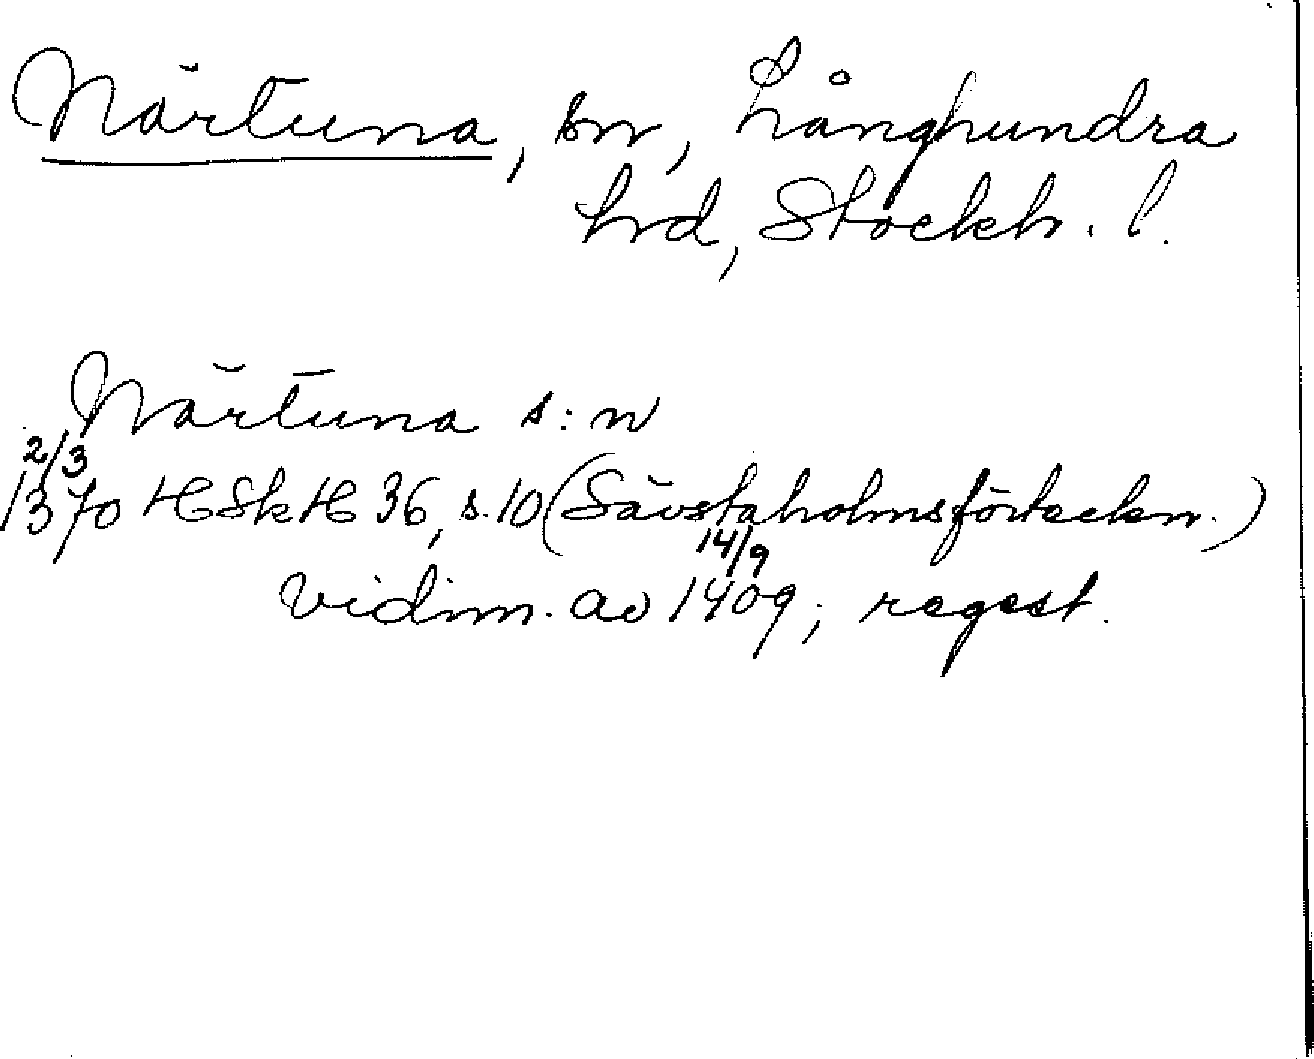 Närtuna, sn, Långhundra
hrd, Stockh. l.
Närtuna s:n
2/3
1370 HSkH 36, s. 10 (Sävstaholmsförteckn.)
14/9
Vidim. av 1409; regest.